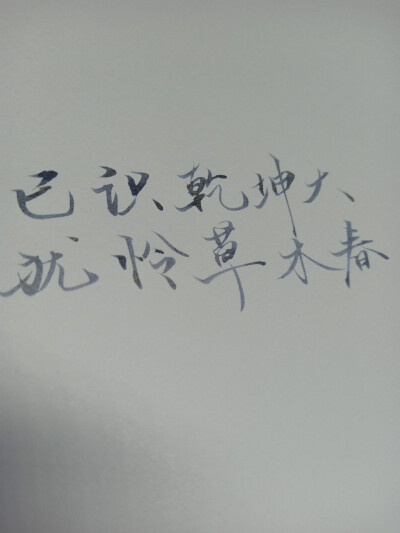 已识乾坤大、
犹怜草木春